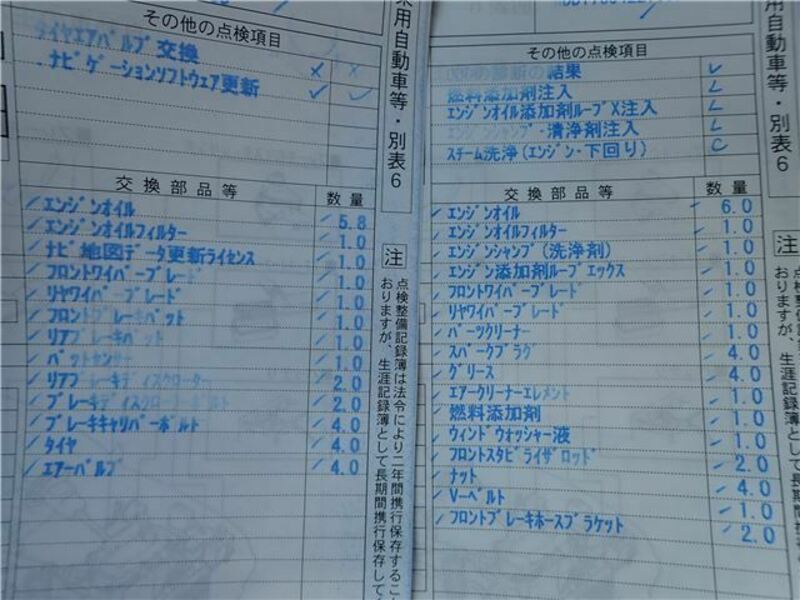 その他の点検項目
タイヤエアバルブ 交換 ×
ナビゲーションソフトウェア更新 ✓
交換部品等 数量
エンジンオイル 5.8
エンジンオイルフィルター 1.0
ナビ地図データ更新ライセンス 1.0
フロントワイパーブレード 1.0
リヤワイパーブレード 1.0
フロントブレーキパット 1.0
リアブレーキパット 1.0
パットセンサー 1.0
リアブレーキディスクローター 2.0
ブレーキディスクローターボルト 2.0
ブレーキキャリパーボルト 4.0
タイヤ 4.0
エアーバルブ 4.0
乗用自動車等・別表6
注
点検整備記録簿は法令により二年間携行保存するこ
おりますが、生涯記録簿として長期間携行保存して
その他の点検項目
の結果
燃料添加剤注入
エンジンオイル添加剤ループX注入
エンジンシャンプ・清浄剤注入
スチーム洗浄(エンジン・下回り)
交換部品等 数量
エンジンオイル 6.0
エンジンオイルフィルター 1.0
エンジンシャンプ(洗浄剤) 1.0
エンジン添加剤ループエックス 1.0
フロントワイパーブレード 1.0
リヤワイパーブレード 1.0
パーツクリーナー 1.0
スパークプラグ 4.0
グリース 4.0
エアークリーナーエレメント 1.0
燃料添加剤 1.0
ウィンドウォッシャー液 1.0
フロントスタビライザロッド 2.0
ナット 4.0
Vーベルト 1.0
フロントブレーキホースブラケット 2.0
用自動車等・別表6
注